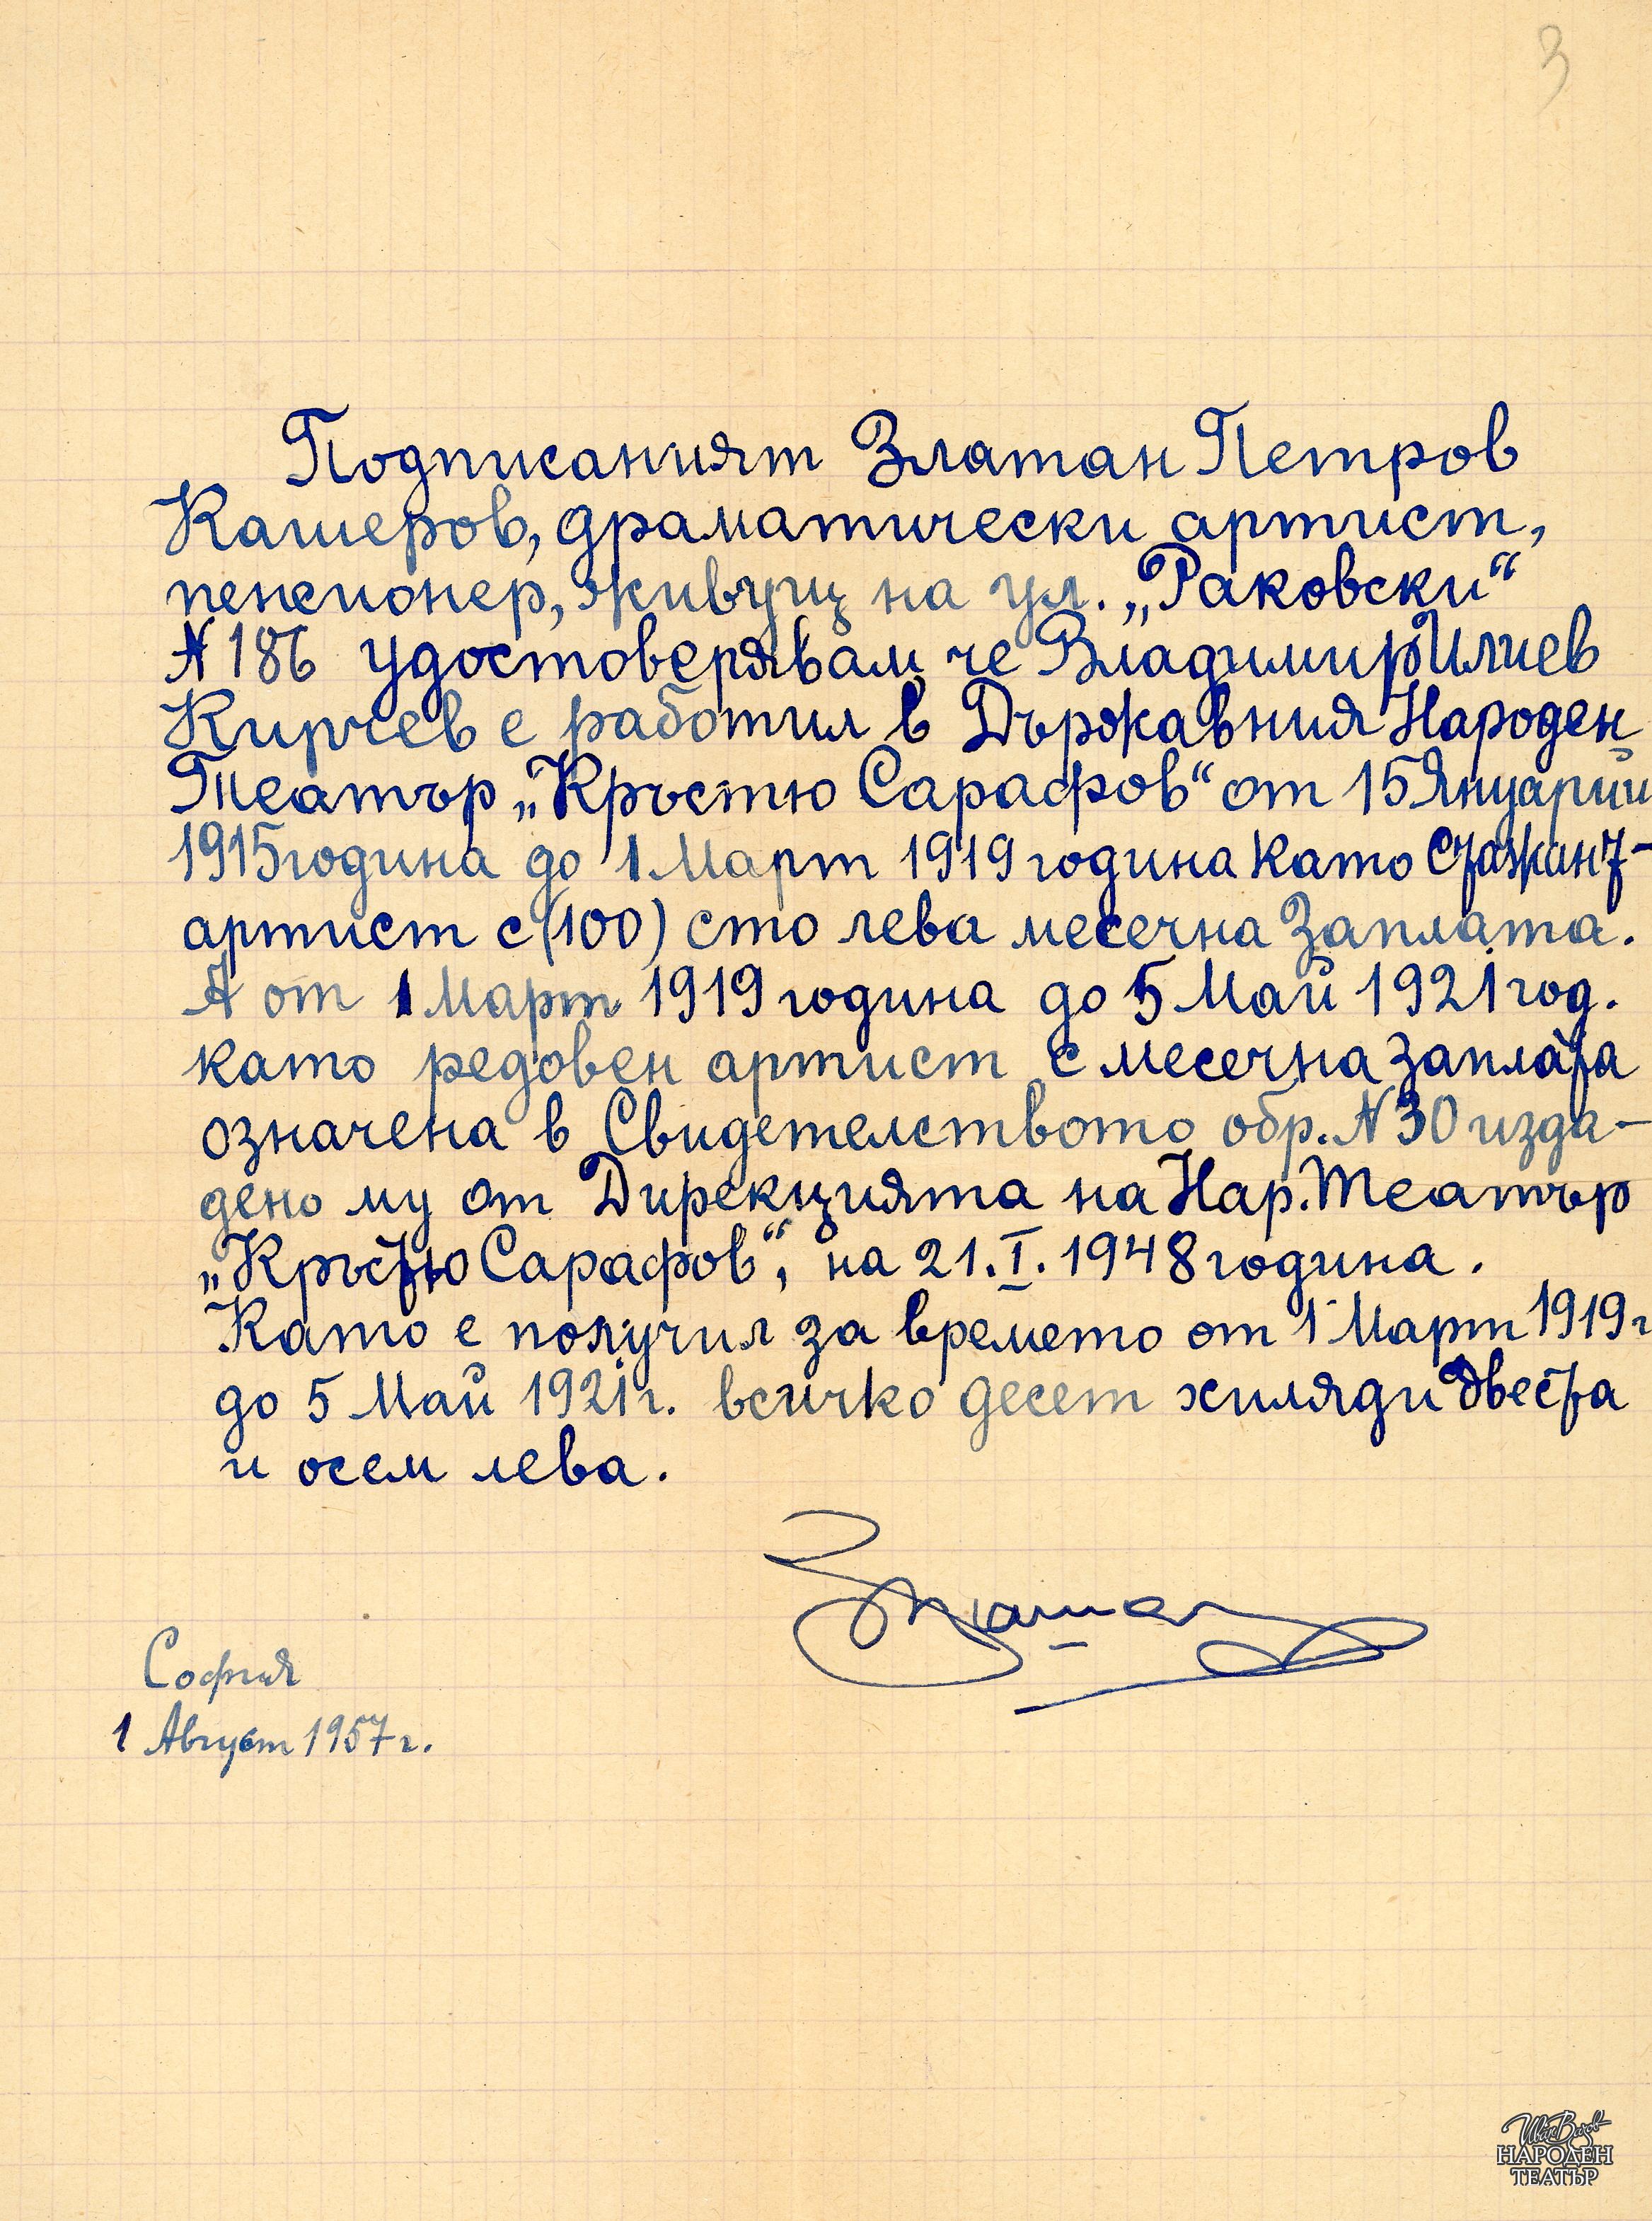 3
Подписаният Златан Петров
Кашеров, драматически артист,
пенсионер, живущ на ул. „Раковски“
№ 186 удостоверявам че Владимир Илиев
Кирчев е работил в Държавния Народен
Театър „Кръстю Сарафов“ от 15 Януарий
1915 година до 1 Март 1919 година като стажант-
артист с (100) сто лева месечна заплата.
А от 1 Март 1919 година до 5 Май 1921 год.
като редовен артист с месечна заплата
означена в Свидетелството обр. № 30 изда-
дено му от Дирекцията на Нар. Театър
„Кръстю Сарафов“, на 21. I. 1948 година.
Като е получил за времето от 1 Март 1919 г
до 5 Май 1921 г. всичко десет хиляди двеста
и осем лева.
София
1 Август 1957 г.
Иван Вазов
НАРОДЕН
ТЕАТЪР